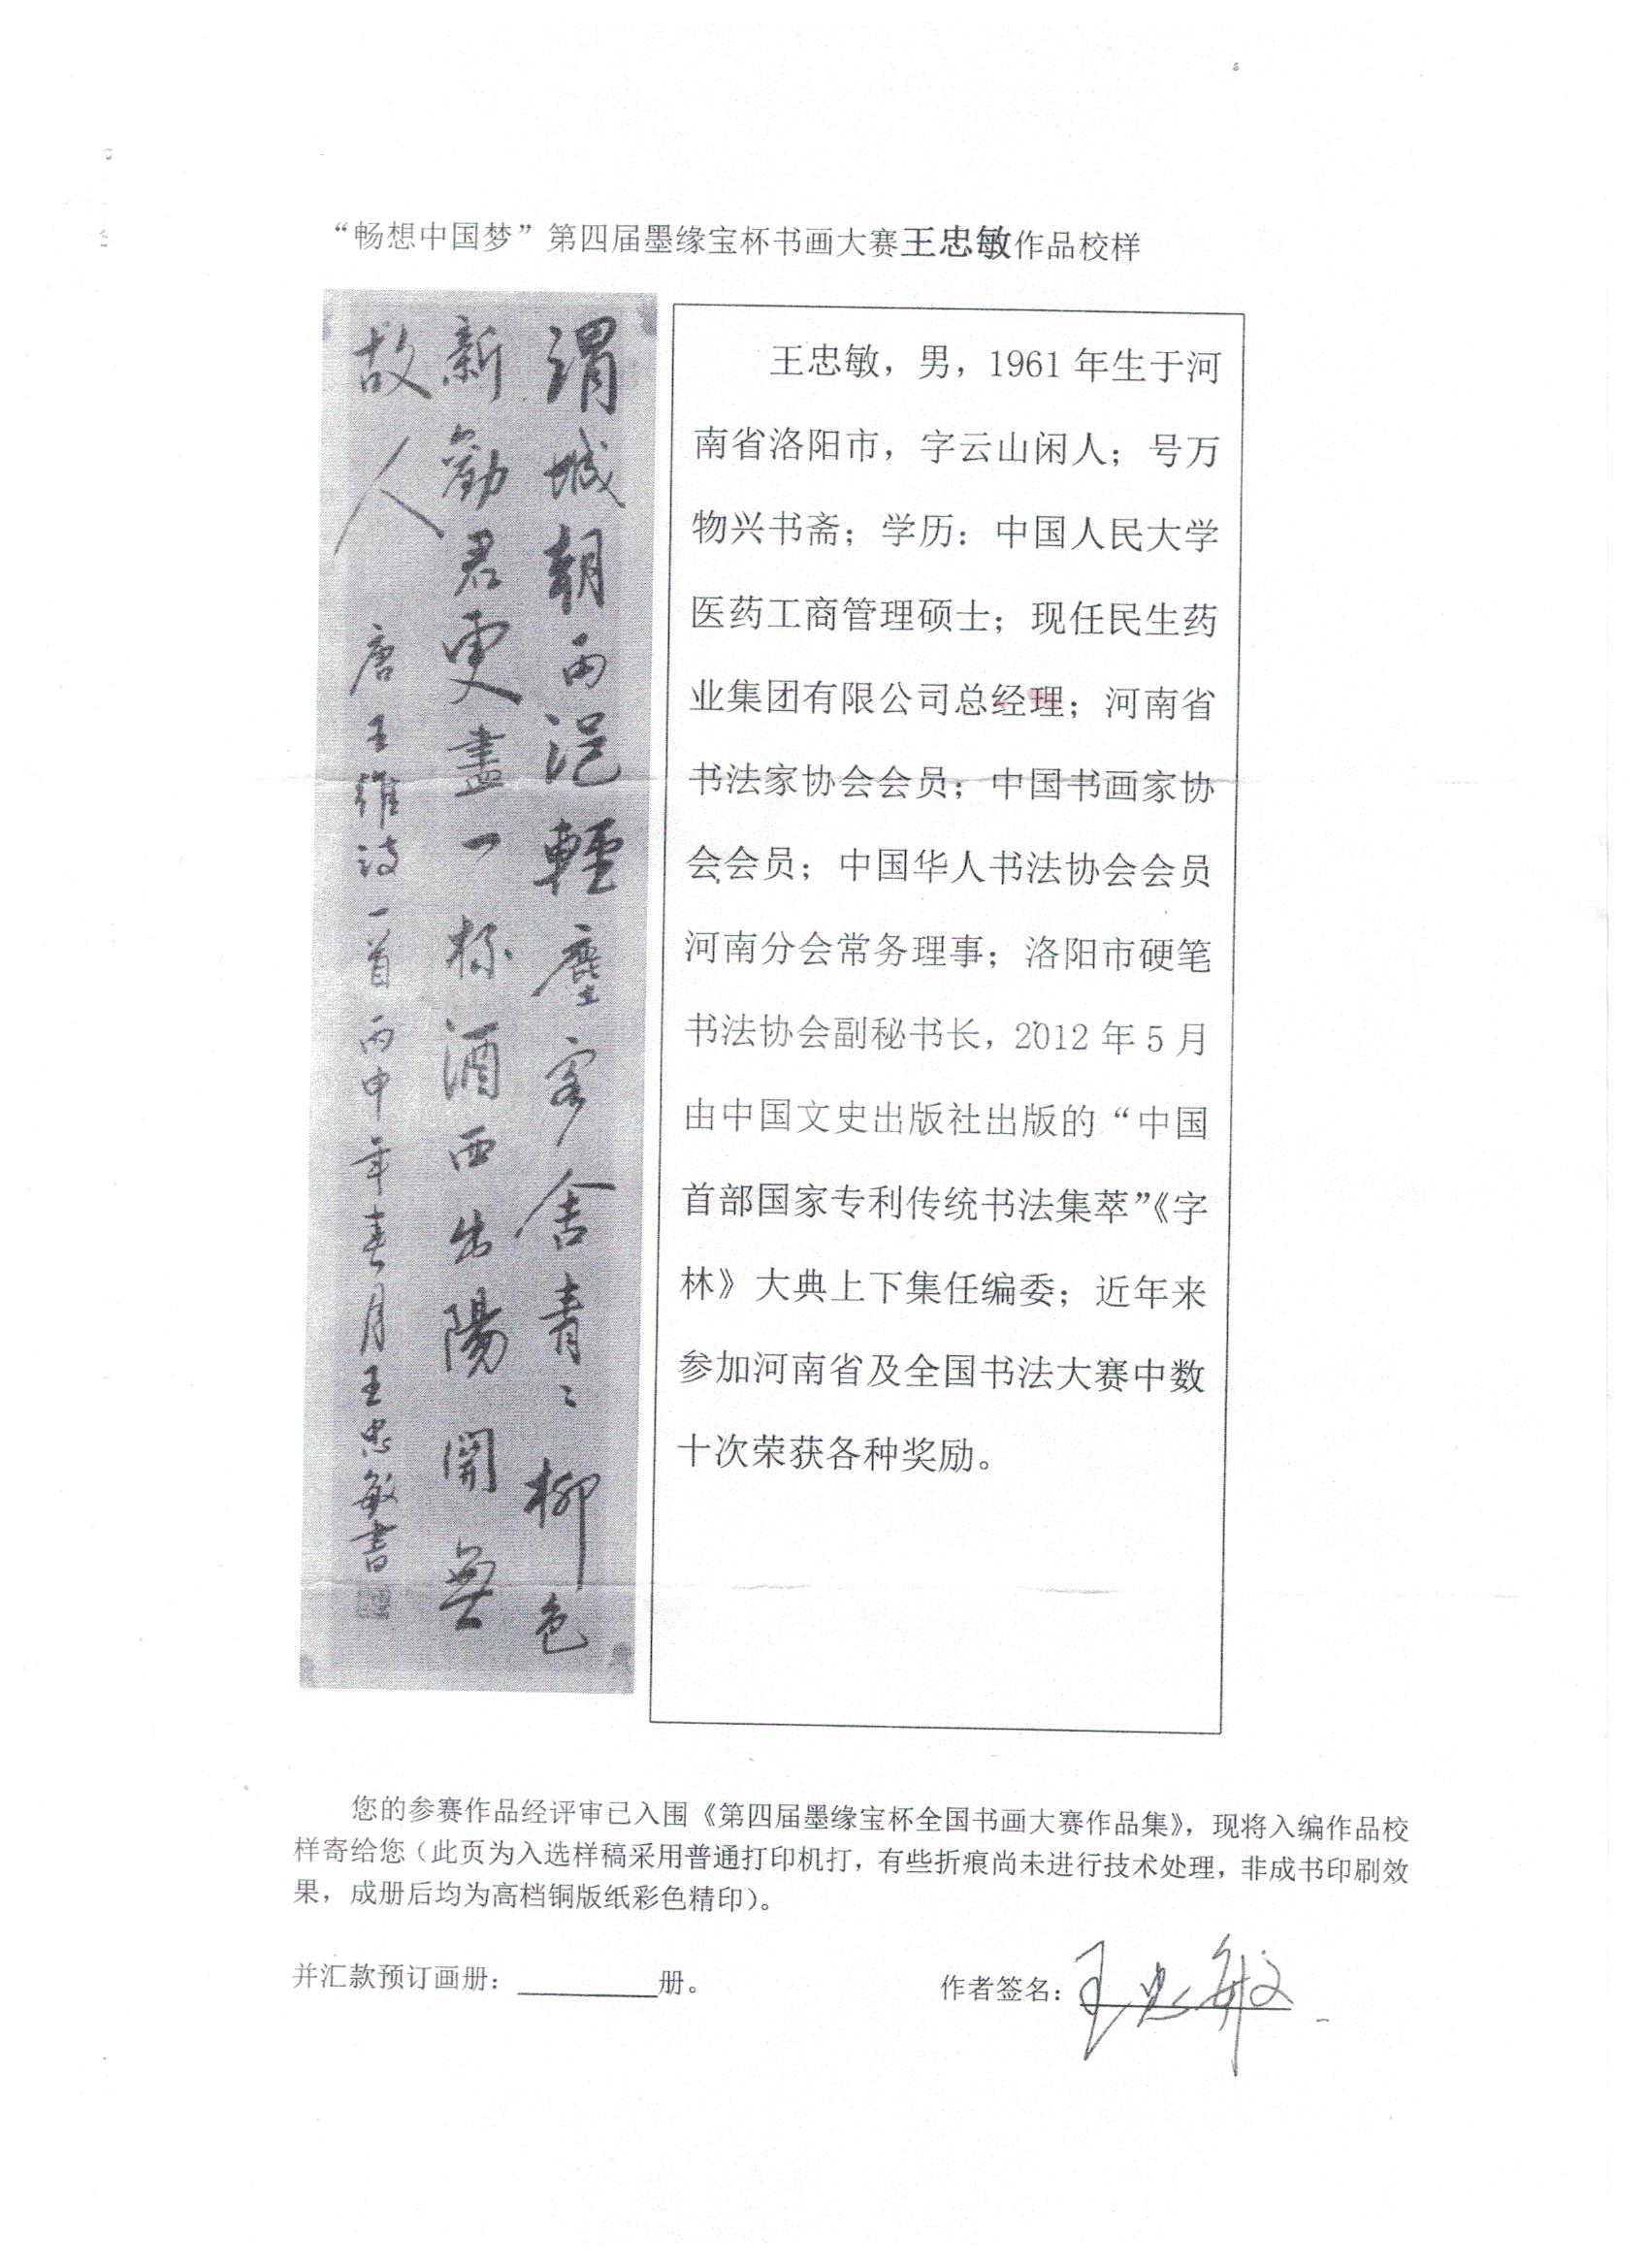 “畅想中国梦”第四届墨缘宝杯书画大赛王忠敏作品校样
渭城朝雨浥輕塵客舍青〻柳色
新勸君更盡一杯酒西出陽關無
故人
唐王維詩一首丙申年春月王忠敏書
王忠敏，男，1961年生于河
南省洛阳市，字云山闲人；号万
物兴书斋；学历：中国人民大学
医药工商管理硕士；现任民生药
业集团有限公司总经理；河南省
书法家协会会员；中国书画家协
会会员；中国华人书法协会会员
河南分会常务理事；洛阳市硬笔
书法协会副秘书长，2012年5月
由中国文史出版社出版的“中国
首部国家专利传统书法集萃”《字
林》大典上下集任编委；近年来
参加河南省及全国书法大赛中数
十次荣获各种奖励。
您的参赛作品经评审已入围《第四届墨缘宝杯全国书画大赛作品集》，现将入编作品校
样寄给您（此页为入选样稿采用普通打印机打，有些折痕尚未进行技术处理，非成书印刷效
果，成册后均为高档铜版纸彩色精印）。
并汇款预订画册：________册。
作者签名：王忠敏